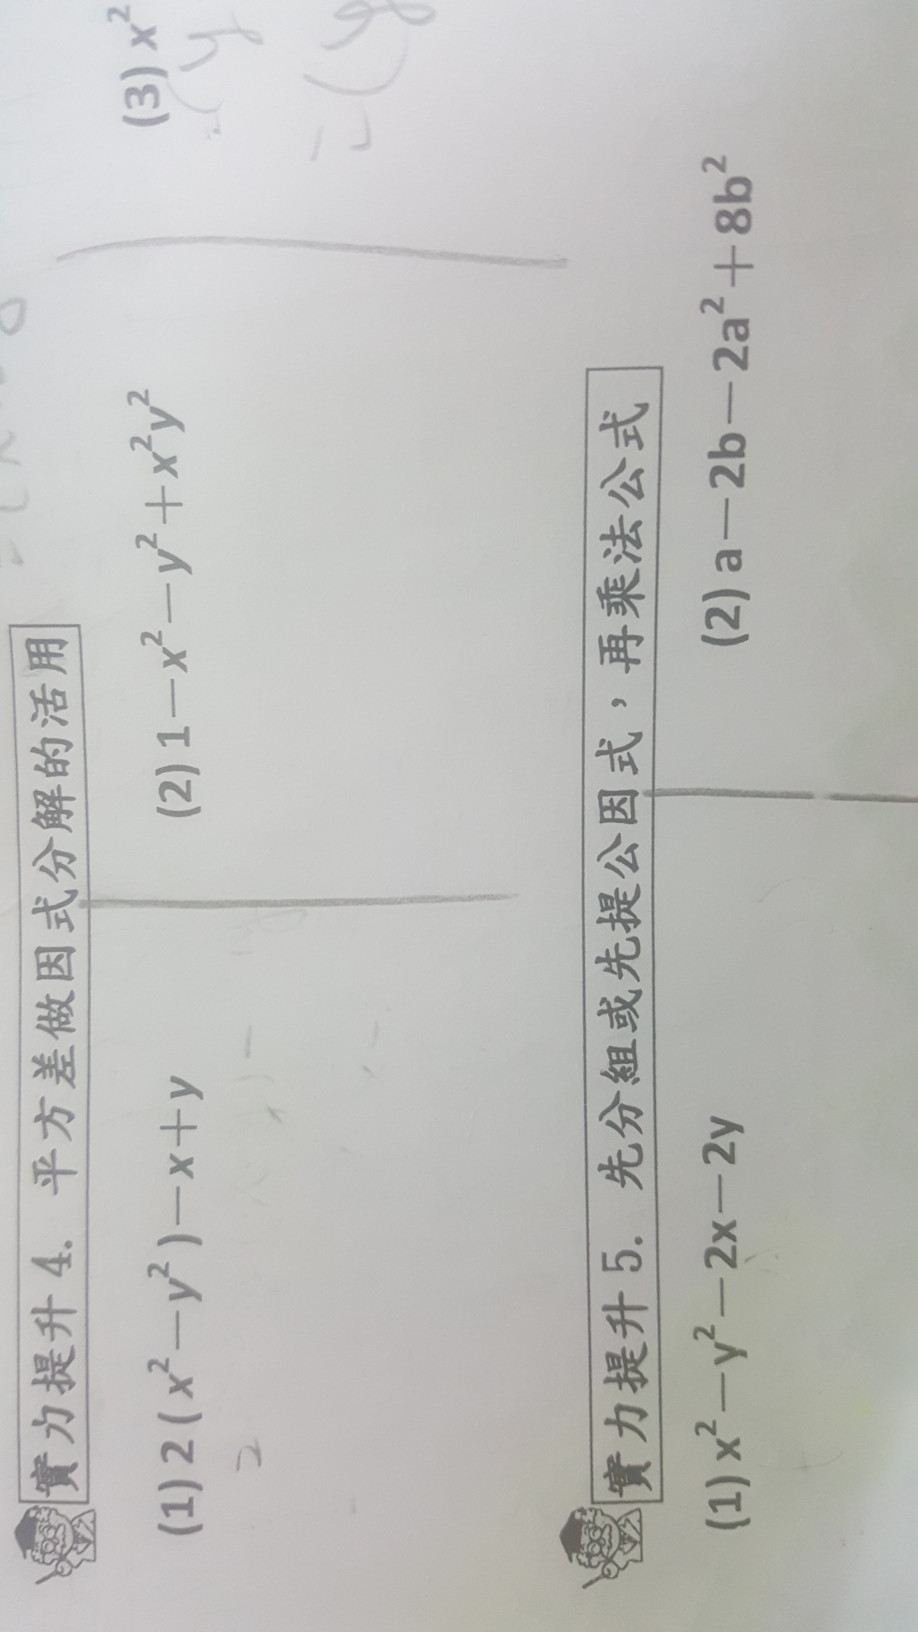 實力提升 4. 平方差做因式分解的活用
(1) 2 ( x² － y² ) － x ＋ y
(2) 1 － x² － y² ＋ x²y²
(3) x²
實力提升 5. 先分組或先提公因式，再乘法公式
(1) x² － y² － 2x － 2y
(2) a － 2b － 2a² ＋ 8b²